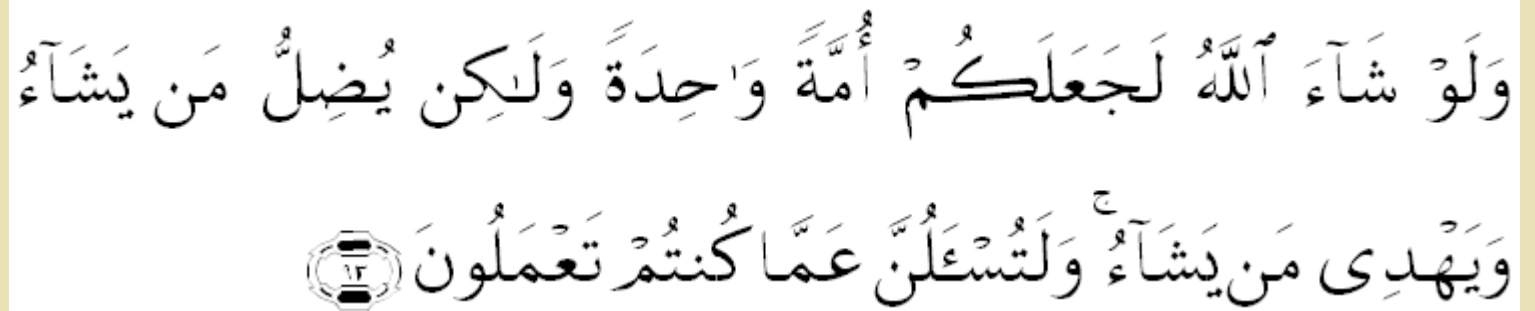 وَلَوْ شَآءَ ٱللَّهُ لَجَعَلَكُمْ أُمَّةً وَٰحِدَةً وَلَـٰكِن يُضِلُّ مَن يَشَآءُ
وَيَهْدِى مَن يَشَآءُ ۚ وَلَتُسْـَٔلُنَّ عَمَّا كُنتُمْ تَعْمَلُونَ